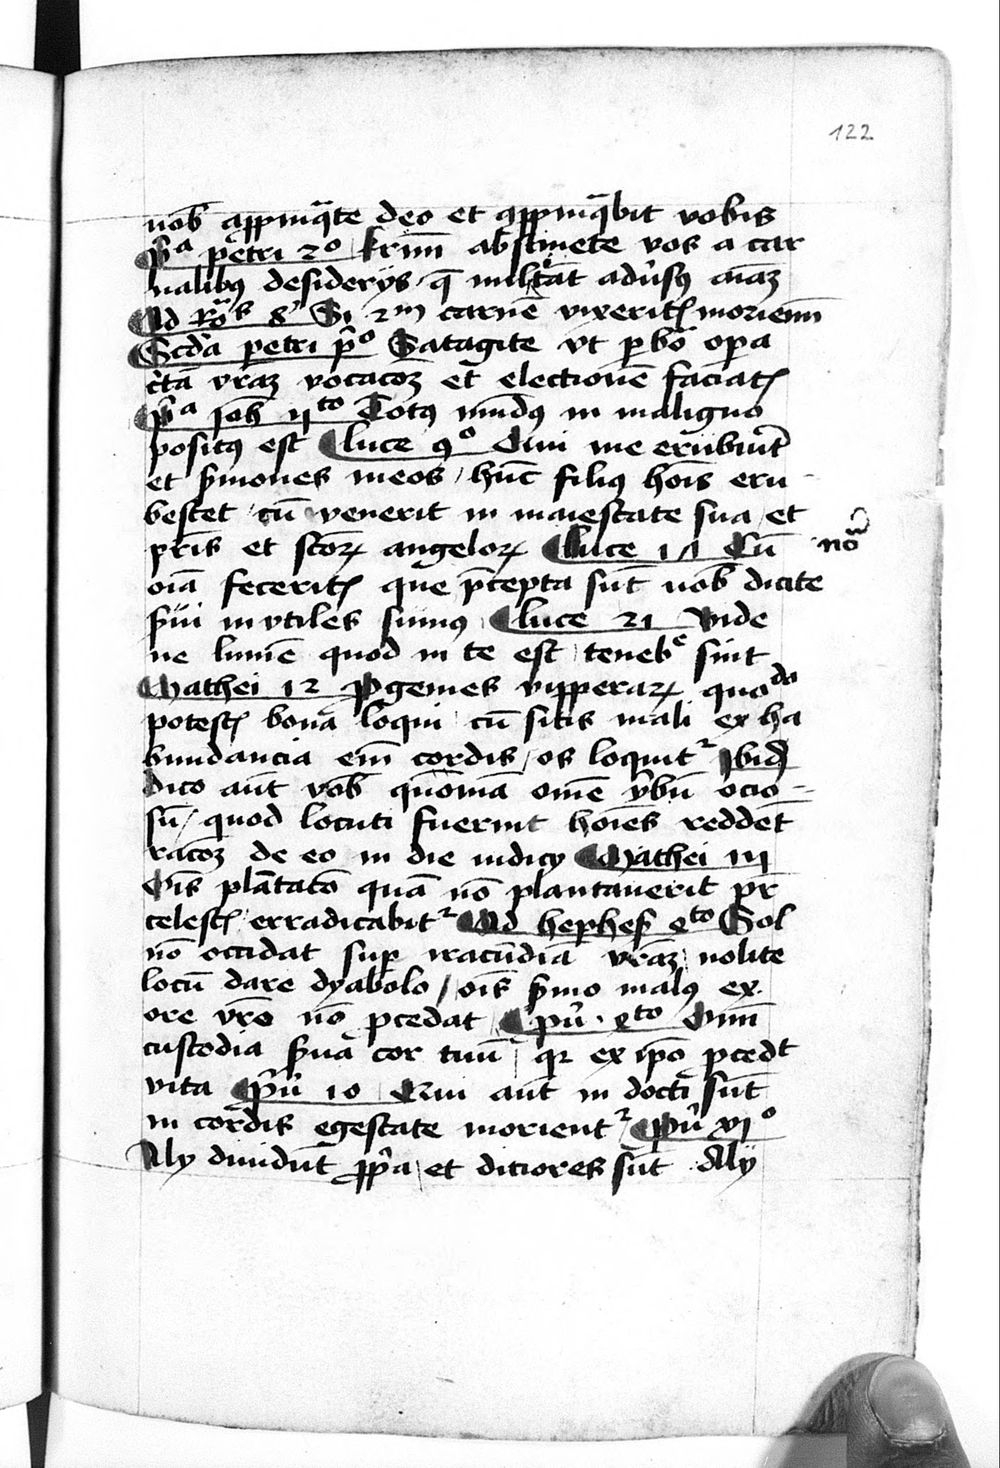 122
nob̄ appinq̄te deo et appinq̄bit vobis
p̄ᵃ petri 2° krīm abstinete vos a car
nalibꝰ desiderijs q̄ milītāt adūsꝰ aīaȝ
Ad Rōs 8° Si 2m carnē vixeritꝭ moriemī
Scd̄a petri p̄° Satagite vt p bō opa
c̄tā vrāȝ vocacōȝ et electionē faciatꝭ
p̄ᵃ Joh̄ ijto Totꝰ mūdꝰ in maligno
positꝰ est luce 9° Qui me erubūit
et s̄mones meos / hūc filiꝰ hoīs eru
bescet cū venerit in maiestate sua et
pr̄is et sctoꝝ angeloꝝ luce 1Λ Cū
nō
oīa feceritꝭ que p̄cepta sūt vob̄ dicite
s̄ui invtiles sumꝰ luce 21 Vide
ne lumē quod in te est tenebᵉ sint
Mathei 12 Pgenies vipperaꝝ quodo
potestꝭ bona loqui cū sitis mali ex ha
bundancia em̄ cordis / os loquitᷣ Ibid̄
dico aūt vob̄ quoniā om̄e v̄bū ocio
sū / quod locuti fuerint hoīes reddēt
racōȝ de eo in die iudicij Mathei 1Λ
Oīs plātatō quā nō plantauerit pr̄
celestꝭ erradicabitᷣ Ad hephes̄ 4to Sol
nō occidat sup iracūdiā vrāȝ nolite
locū dare dyabolo / oīs s̄mo malꝰ ex
ore vrō nō pcedat pū 4to Omī
custodia s̄ua cor tuū qꝛ ex ip̄o pcedt
vita pū 10 Qui aūt in docti sūt
in cordis egestate morientᷣ pū xj°
Alij diuidūt ppa et diciores sūt Alij